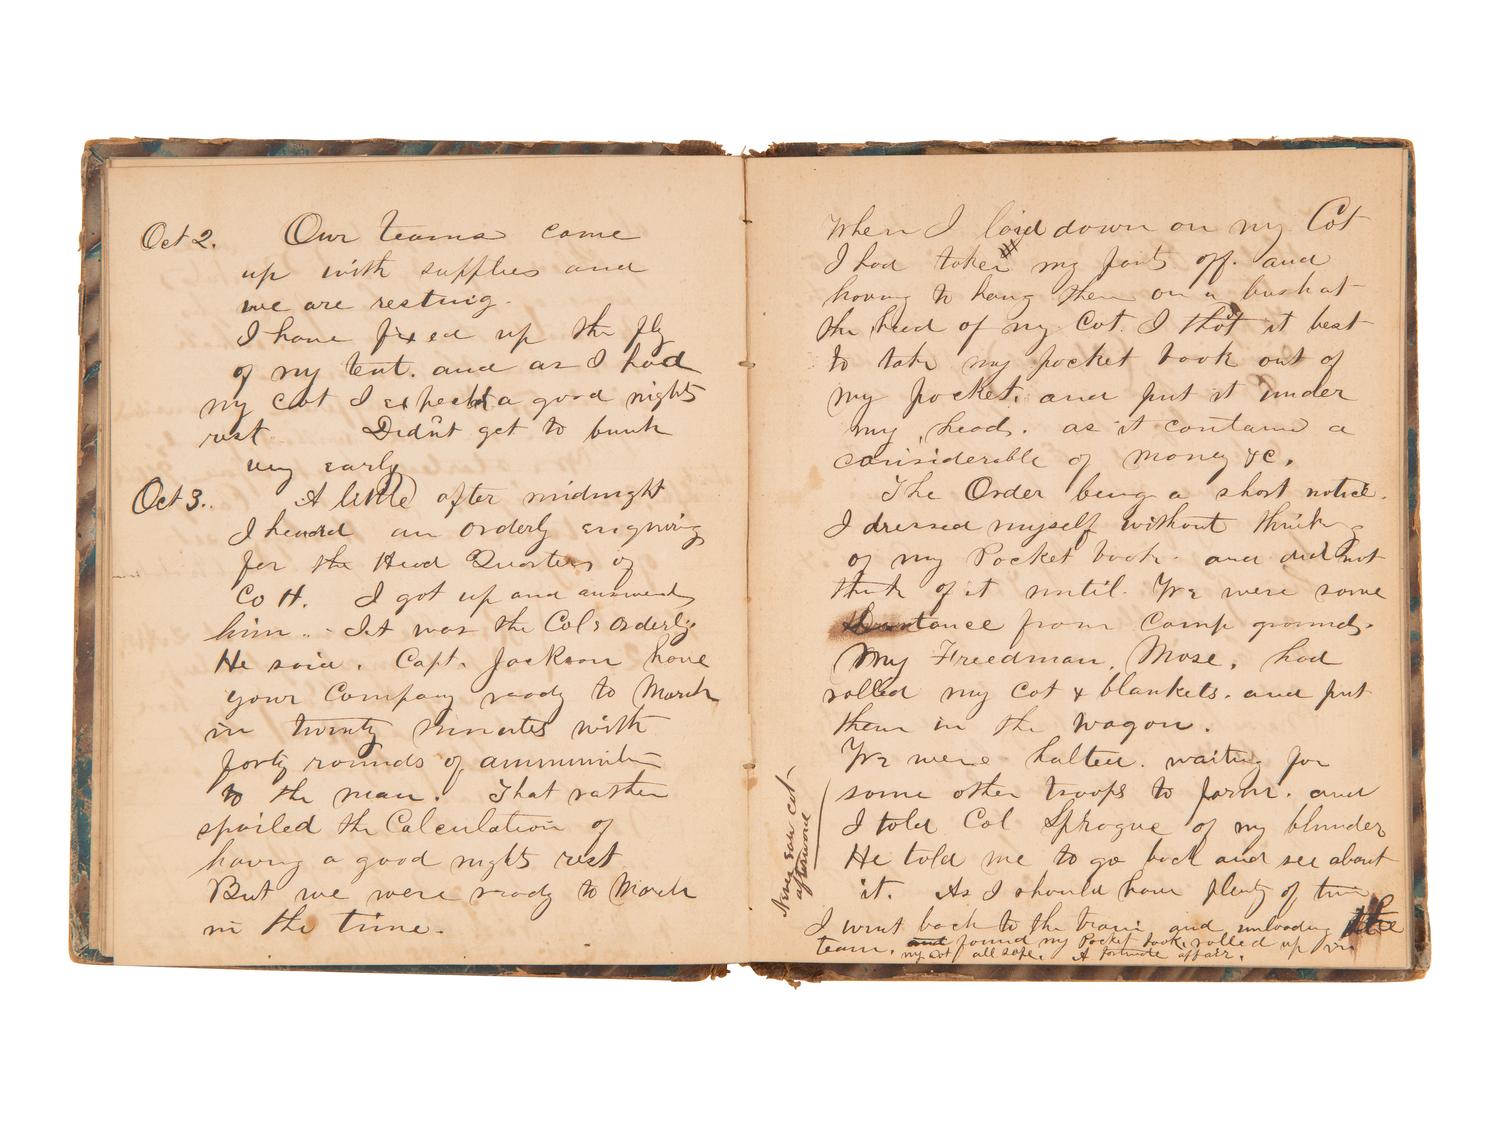 Oct 2. Our teams came
up with supplies and
we are resting.
I have fixed up the fly
of my tent. and as I had
my cot I expected a good nights
rest Didn't get to bunk
very early
Oct 3. A little after midnight
I heard an orderly enquiring
for the Head Quarters of
Co H. I got up and answered
him. It was the Cols Orderly
He said. Capt. Jackson have
your Company ready to March
in twenty minutes with
forty rounds of ammunition
to the man. That rather
spoiled the Calculation of
having a good nights rest
But we were ready to March
in the time.
When I laid down on my Cot
I had taken my pants off. and
having to hang them on a bush at
the head of my Cot. I thot it best
to take my pocket book out of
my pocket. and put it under
my head. as it contained a
considerable of money &c.
The Order being a short notice.
I dressed myself without thinking
of my Pocket book. and did not
think of it until. We were some
distance from Camp grounds.
My Freedman, Mose, had
rolled my cot & blankets. and put
them in the wagon.
We were halted. waiting for
some other troops to form. and
I told Col Sprague of my blunder
He told me to go back and see about
it. As I should have plenty of time
I went back to the train and unloading the
team. and found my Pocket book rolled up in
my cot all safe. A fortunate affair.
Never saw cot
afterward